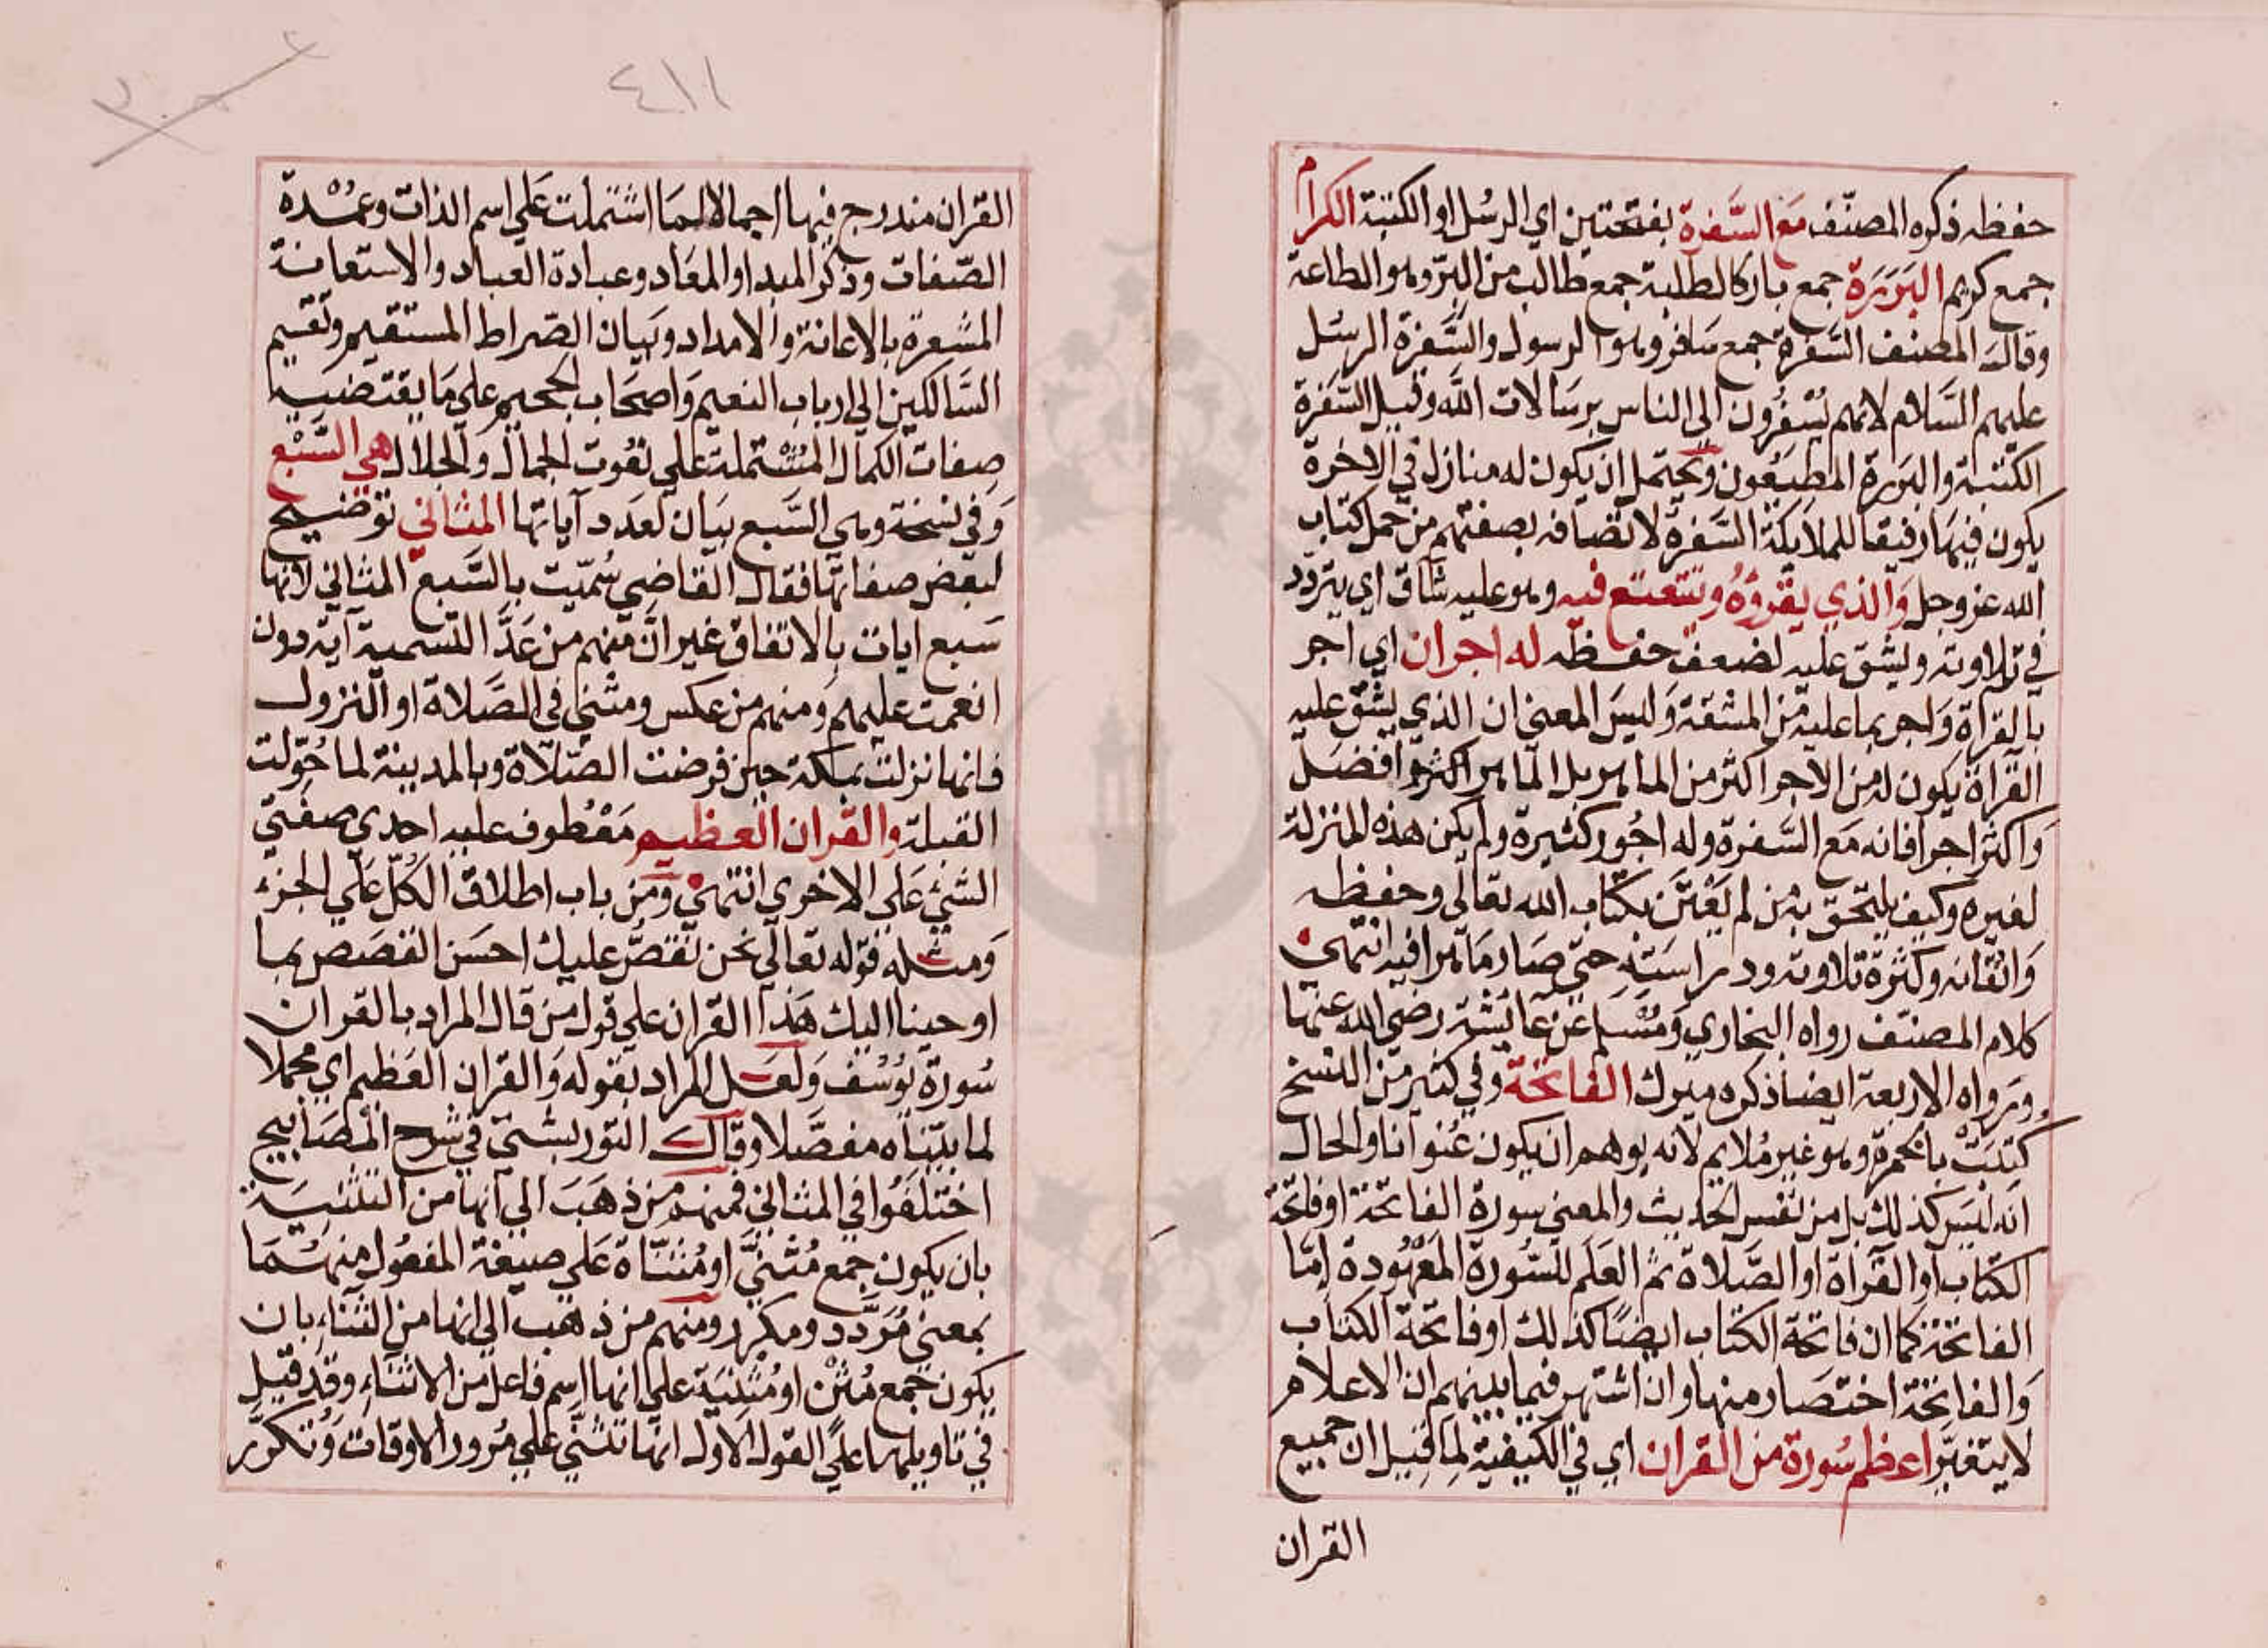 حفظه ذكره المصنّف مع السَّفرة بفتحتين اي الرسُل او الكتبة الكرام
جمع كريم البَرَرَة جمع بار كالطلبة جمع طالب من البرّ وهو الطاعة
وقال المصنف السَّفرة جمع سَافر وهو الرسول والسَّفرة الرسُل
عليهم السَّلام لانهم يُسْفِرُون الى الناس برسَالات اللَّه وقيل السَّفرة
الكَتبة والبَررة المطيعُون ويحتمل ان يكون له منازل في الاخرة
يكون فيهَا رفيقا للملايكة السَّفرة لاتصافه بصفتهم من حمل كتاب
الله عز وجل وَالذي يقرؤهُ ويتتعتع فيه وهو عليه شَاق اي يتردد
في تلاوته ويشق عليه لضعف حفظه له اجران اي اجر
بالقرآة وَاجر بما عليه من المشقة وَليسَ المعني ان الذي يشق عليه
القراة يكون له من الاجر اكثر من الماهر بل الماهر اكثر وافضل
وَاكثر اجرا فانه مَع السَّفرة وله اجُور كثيرة ولم يكن هذه المنزلة
لغيره وكيف يلتحق به من لم يَعْتَن بكتاب الله تعالى وحفظه
وَاتقانه وكثرة تلاوته ودراسَته حتي صَار مَاهرا فيه انتهي
كلام المصنّف رواه البخاري وَمُسْلم عَن عَائشة رضي الله عنها
ورواه الاربعة ايضا ذكره ميرك الفاتحة وفي كثير من النسخ
كتبَتْ بالحمرة وهو غير مُلايم لانه يوهم ان يكون عُنوانا والحال
انه ليسَ كذلك بل من نفس الحديث والمعني سورة الفاتحة او فاتحة
الكتاب او القرآة او الصَّلاة ثم العَلَم للسُّورة المَعْهُودة إمّا
الفاتحة كما ان فاتحة الكتاب ايضًا كذلك او فاتحة الكتاب
وَالفاتحة اختصَار منها وان اشتهر فيما بينهم ان الاعلام
لا يتغيّر اعظم سُورة من القران اي في الكيفية لِما قيل ان جميع
القران
٤١١
القران مندرج فيها اجمالا لمَا اشتملت عَلي اسم الذات وعُمْدة
الصّفات وذكر المبدا والمعَاد وعبادة العباد والاستعانة
المشعرة بالاعانة والامداد وبَيان الصّراط المستقيم وتقسيم
السَّالكين الي ارباب النعيم وَاصحَاب الجحيم علي مَا يقتضيه
صِفات الكمال المُشْتملة علي نعُوت الجمال والجلال هي السَّبْع
وَفي نسخة وهي السَّبع بيَان لعَدد آياتها المثاني توضيح
لبعض صفاتها فقال القاضي سُمّيت بالسَّبع المثاني لانها
سَبع ايات بالاتفاق غير انَّ منهم من عَدَّ التسمية آية دون
انعمت عليهم وَمنهم من عكس ومثني في الصَّلاة او النزول
فانها نزلت بمكة حين فرضت الصّلاة وبالمدينة لما حُوّلت
القبلة والقران العظيم مَعْطوف عليه احدي صفَتي
الشئ عَلي الاخري انتهي ومَن باب اطلاق الكُلّ عَلي الجزء
وَمثله قوله تعَالي نحن نقصُّ عليك احسَن القصَص بما
اوحينا اليك هَذا القران علي قول من قال المراد بالقران
سُورة يوسُف وَلعَل المراد بقوله وَالقران العَظيم اي مجملا
لما بيّناه مفصَّلا وقال التوربشتي في شرح المصَابيح
اختلَفُوا في المثاني فمنهم من ذهَبَ الي انها من التثنيَة
بان يكون جمع مُثْنيً او مُثنّاة عَلي صيغة المفعُول منهُمَا
بمعني مُردَّد ومكرر ومنهم من ذهَب الي انها من الثناء بان
يكون جمع مُثْن او مُثْنية علي انها اسِم فاعل من الاثناء وقد قيل
في تاويلها علي القول الاول انها تثنّي علي مُرور الاوقات وَتتكرّر